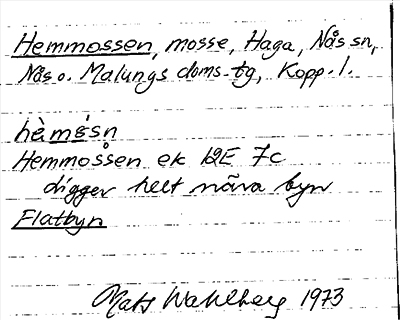 Hemmossen, mosse, Haga, Nås sn,
Nås o. Malungs doms.tg, Kopp. l.
hèmɷ̀sn
Hemmossen ek 12E 7c
ligger helt nära byn
Flatbyn
Mats Wahlberg 1973